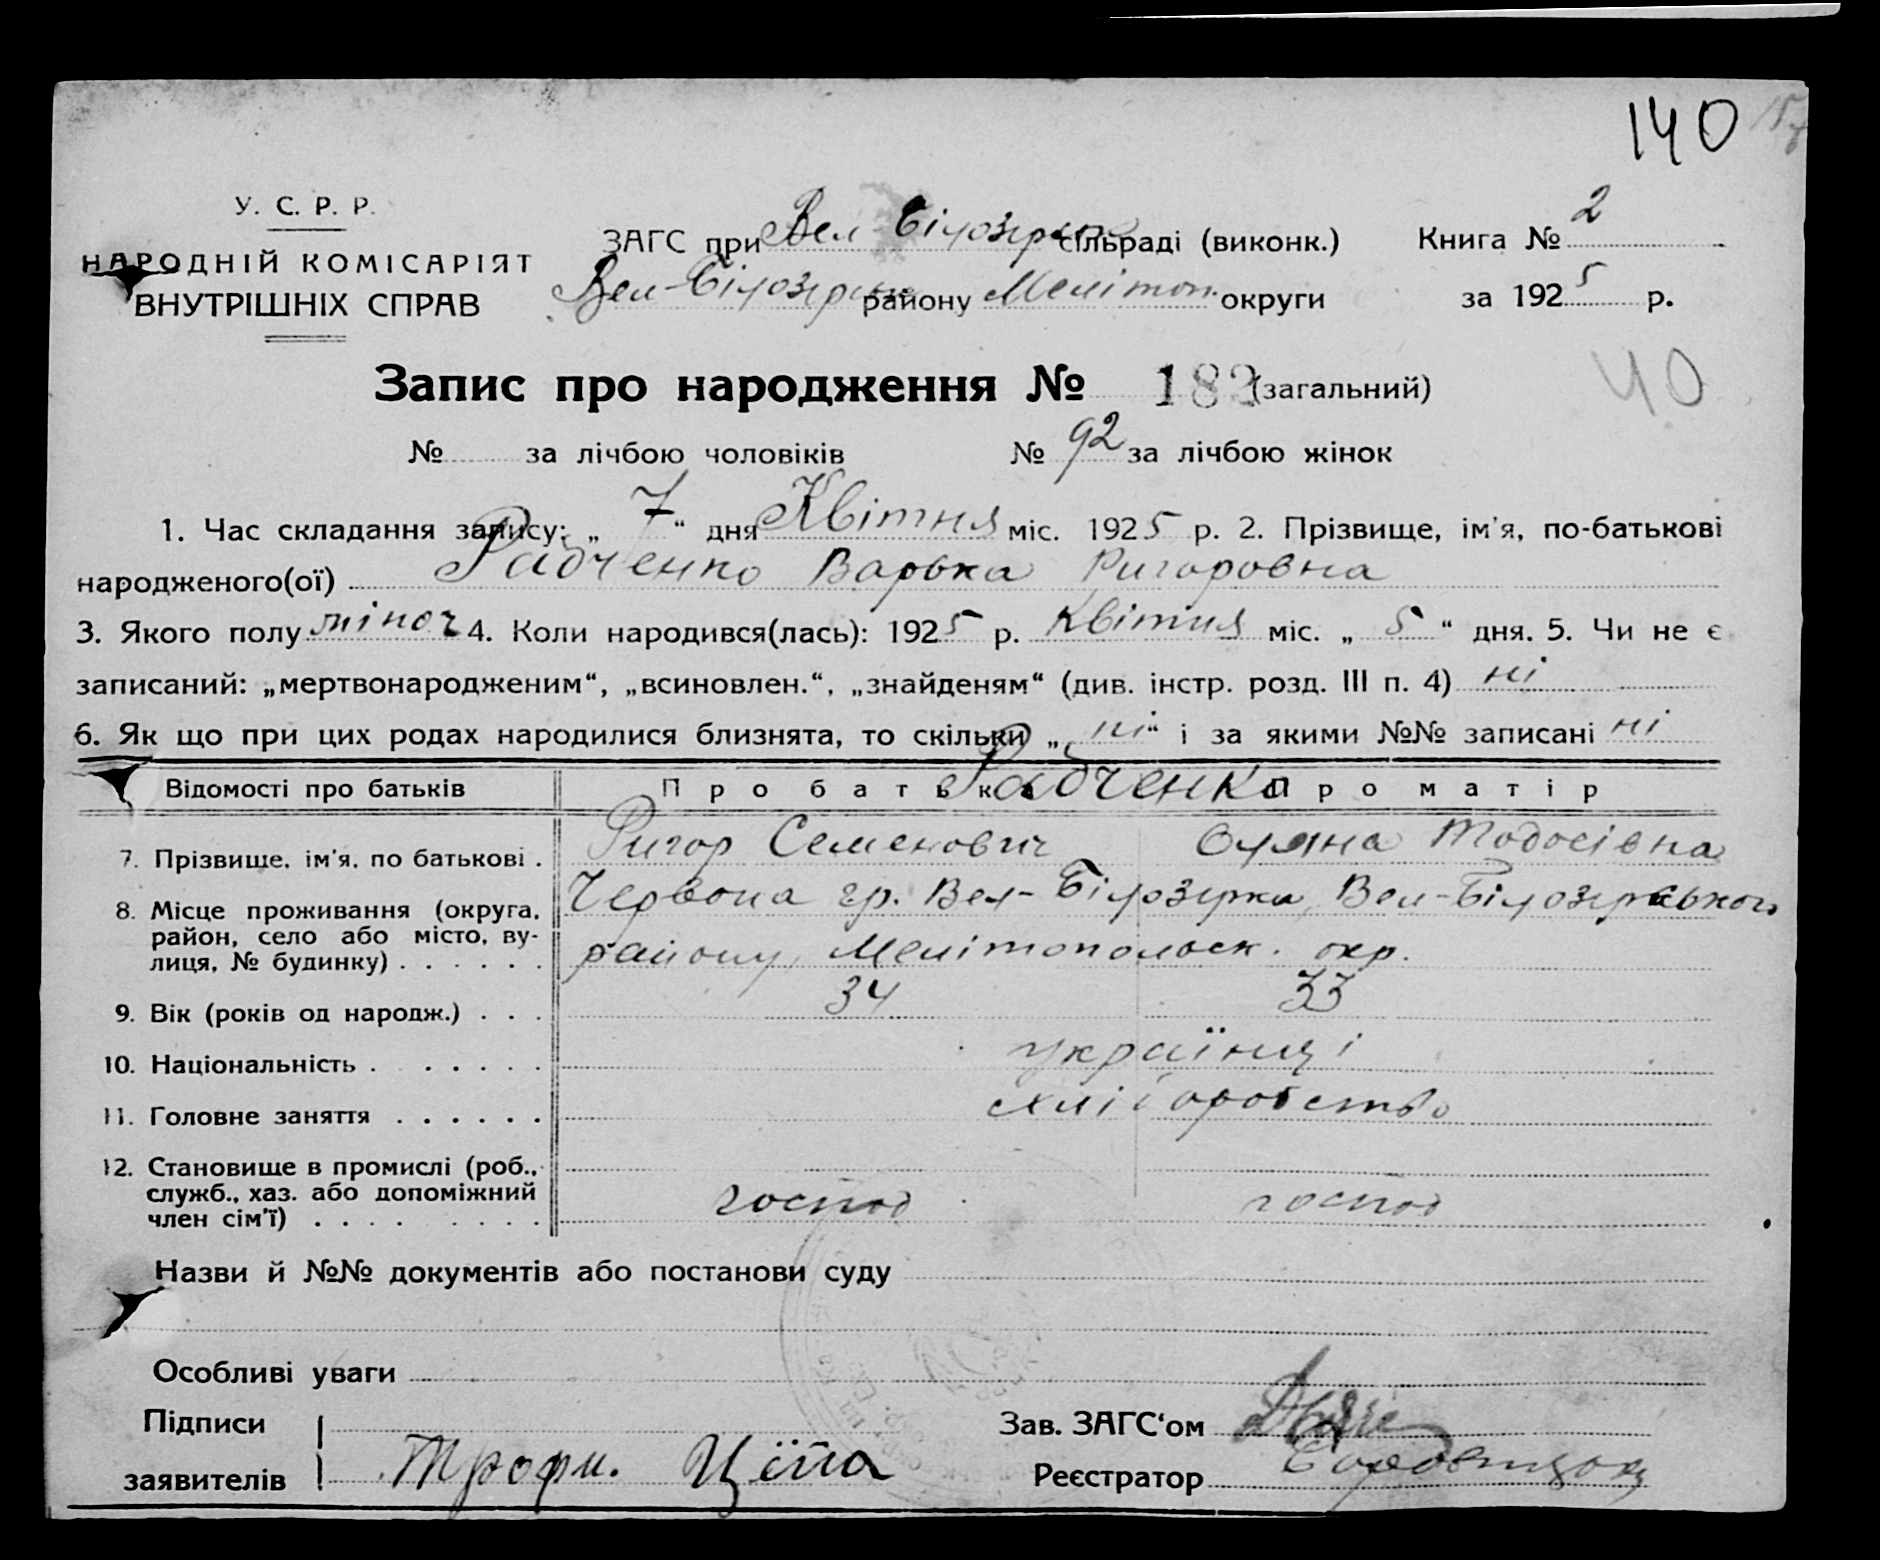 140
У. С. Р. Р.
НАРОДНІЙ КОМІСАРІЯТ
ВНУТРІШНІХ СПРАВ
ЗАГС при Вел Білозірск сільраді (виконк.) Книга № 2
Вел-Білозірск району Мелітоп. округи за 1925 р.
Запис про народження № 183 (загальний)
40
№ за лічбою чоловіків № 92 за лічбою жінок
1. Час складання запису: „ 7 “ дня Квітня міс. 1925 р. 2. Прізвище, ім'я, по-батькові
народженого(ої) Рабченко Варька Ригоровна
3. Якого полу жіноч 4. Коли народився(лась): 1925 р. Квітня міс. „ 5 “ дня. 5. Чи не є
записаний: „мертвонародженим“, „всиновлен.“, „знайденям“ (див. інстр. розд. III п. 4) ні
6. Як що при цих родах народилися близнята, то скільки „ ні “ і за якими №№ записані ні
Відомості про батьків Про батька Рабченко Про матір
7. Прізвище, ім'я, по батькові . Ригор Семенович Оляна Тодосівна
8. Місце проживання (округа, район, село або місто, вулиця, № будинку) Червона гр. Вел-Білозірка, Вел-Білозірського
району, Мелітопольск. окр.
9. Вік (років од народж.) . . . 34 33
10. Національність . українці
11. Головне заняття хліборобство
12. Становище в промислі (роб.,
служб., хаз. або допоміжний
член сім'ї) господ господ
Назви й №№ документів або постанови суду
Особливі уваги
Підписи Зав. ЗАГС‘ом
заявителів Трофим. Ціпа Реєстратор